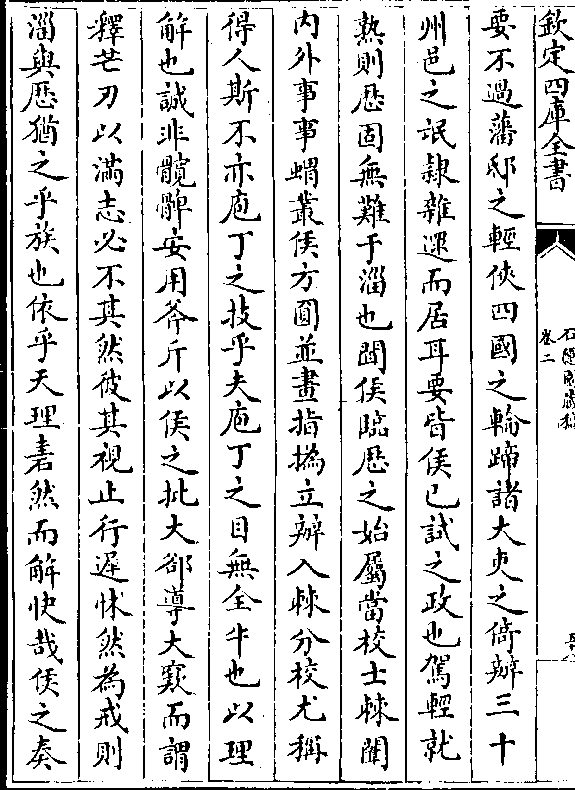 欽定四庫全書
卷二
要不過藩邸之輕俠四國之輪蹄諸大吏之倚辦三十
州邑之氓隸雜遝而居耳要皆侯已試之政也駕輕就
熟則歷固無難于淄也聞侯臨歷之始屬當校士棘闈
内外事事蝟叢侯方圓並畫指撝立辦入棘分校尤稱
得人斯不亦庖丁之技乎夫庖丁之目無全牛也以理
解也誠非髖髀安用斧斤以侯之批大郤導大窾而謂
釋芒刃以滿志必不其然彼其視止行遲怵然為戒則
淄與歷猶之乎族也依乎天理砉然而解快哉侯之奏